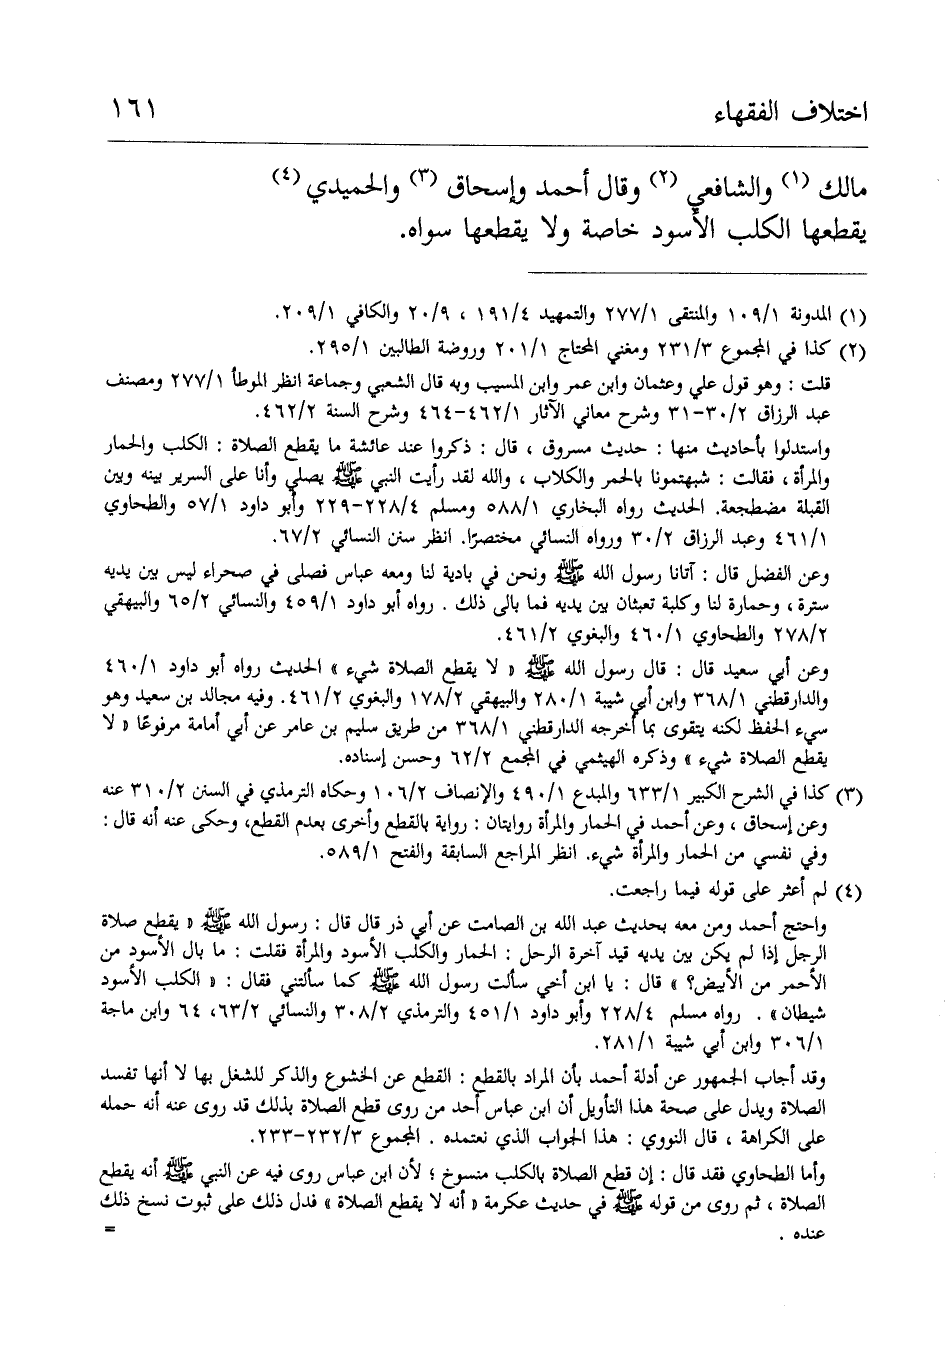 اختلاف الفقهاء ١٦١
مالك (١) والشافعي (٢) وقال أحمد وإسحاق (٣) والحميدي (٤)
يقطعها الكلب الأسود خاصة ولا يقطعها سواه.
(١) المدونة ١٠٩/١ والمنتقى ٢٧٧/١ والتمهيد ١٩١/٤ ، ٢٠/٩ والكافي ٢٠٩/١.
(٢) كذا في المجموع ٢٣١/٣ ومغني المحتاج ٢٠١/١ وروضة الطالبين ٢٩٥/١.
قلت : وهو قول علي وعثمان وابن عمر وابن المسيب وبه قال الشعبي وجماعة انظر الموطأ ٢٧٧/١ ومصنف
عبد الرزاق ٣٠/٢-٣١ وشرح معاني الآثار ٤٦٢/١-٤٦٤ وشرح السنة ٤٦٢/٢.
واستدلوا بأحاديث منها : حديث مسروق ، قال : ذكروا عند عائشة ما يقطع الصلاة : الكلب والحمار
والمرأة ، فقالت : شبهتمونا بالحمر والكلاب ، والله لقد رأيت النبي ﷺ يصلي وأنا على السرير بينه وبين
القبلة مضطجعة. الحديث رواه البخاري ٥٨٨/١ ومسلم ٢٢٨/٤-٢٢٩ وأبو داود ٥٧/١ والطحاوي
٤٦١/١ وعبد الرزاق ٣٠/٢ ورواه النسائي مختصرًا. انظر سنن النسائي ٦٧/٢.
وعن الفضل قال : آتانا رسول الله ﷺ ونحن في بادية لنا ومعه عباس فصلى في صحراء ليس بين يديه
سترة ، وحمارة لنا وكلبة تعبثان بين يديه فما بالى ذلك . رواه أبو داود ٤٥٩/١ والنسائي ٦٥/٢ والبيهقي
٢٧٨/٢ والطحاوي ٤٦٠/١ والبغوي ٤٦١/٢.
وعن أبي سعيد قال : قال رسول الله ﷺ « لا يقطع الصلاة شيء » الحديث رواه أبو داود ٤٦٠/١
والدارقطني ٣٦٨/١ وابن أبي شيبة ٢٨٠/١ والبيهقي ١٧٨/٢ والبغوي ٤٦١/٢. وفيه مجالد بن سعيد وهو
سيء الحفظ لكنه يتقوى بما أخرجه الدارقطني ٣٦٨/١ من طريق سليم بن عامر عن أبي أمامة مرفوعًا « لا
يقطع الصلاة شيء » وذكره الهيثمي في المجمع ٦٢/٢ وحسن إسناده.
(٣) كذا في الشرح الكبير ٦٣٣/١ والمبدع ٤٩٠/١ والإنصاف ١٠٦/٢ وحكاه الترمذي في السنن ٣١٠/٢ عنه
وعن إسحاق ، وعن أحمد في الحمار والمرأة روايتان : رواية بالقطع وأخرى بعدم القطع، وحكى عنه أنه قال :
وفي نفسي من الحمار والمرأة شيء. انظر المراجع السابقة والفتح ٥٨٩/١.
(٤) لم أعثر على قوله فيما راجعت.
واحتج أحمد ومن معه بحديث عبد الله بن الصامت عن أبي ذر قال قال : رسول الله ﷺ « يقطع صلاة
الرجل إذا لم يكن بين يديه قيد آخرة الرحل : الحمار والكلب الأسود والمرأة فقلت : ما بال الأسود من
الأحمر من الأبيض؟ » قال : يا ابن أخي سألت رسول الله ﷺ كما سألتني فقال : « الكلب الأسود
شيطان» . رواه مسلم ٢٢٨/٤ وأبو داود ٤٥١/١ والترمذي ٣٠٨/٢ والنسائي ٦٣/٢، ٦٤ وابن ماجة
٣٠٦/١ وابن أبي شيبة ٢٨١/١.
وقد أجاب الجمهور عن أدلة أحمد بأن المراد بالقطع : القطع عن الخشوع والذكر للشغل بها لا أنها تفسد
الصلاة ويدل على صحة هذا التأويل أن ابن عباس أحد من روى قطع الصلاة بذلك قد روى عنه أنه حمله
على الكراهة ، قال النووي : هذا الجواب الذي نعتمده . المجموع ٢٣٢/٣-٢٣٣.
وأما الطحاوي فقد قال : إن قطع الصلاة بالكلب منسوخ ؛ لأن ابن عباس روى فيه عن النبي ﷺ أنه يقطع
الصلاة ، ثم روى من قوله ﷺ في حديث عكرمة « أنه لا يقطع الصلاة » فدل ذلك على ثبوت نسخ ذلك
عنده . =